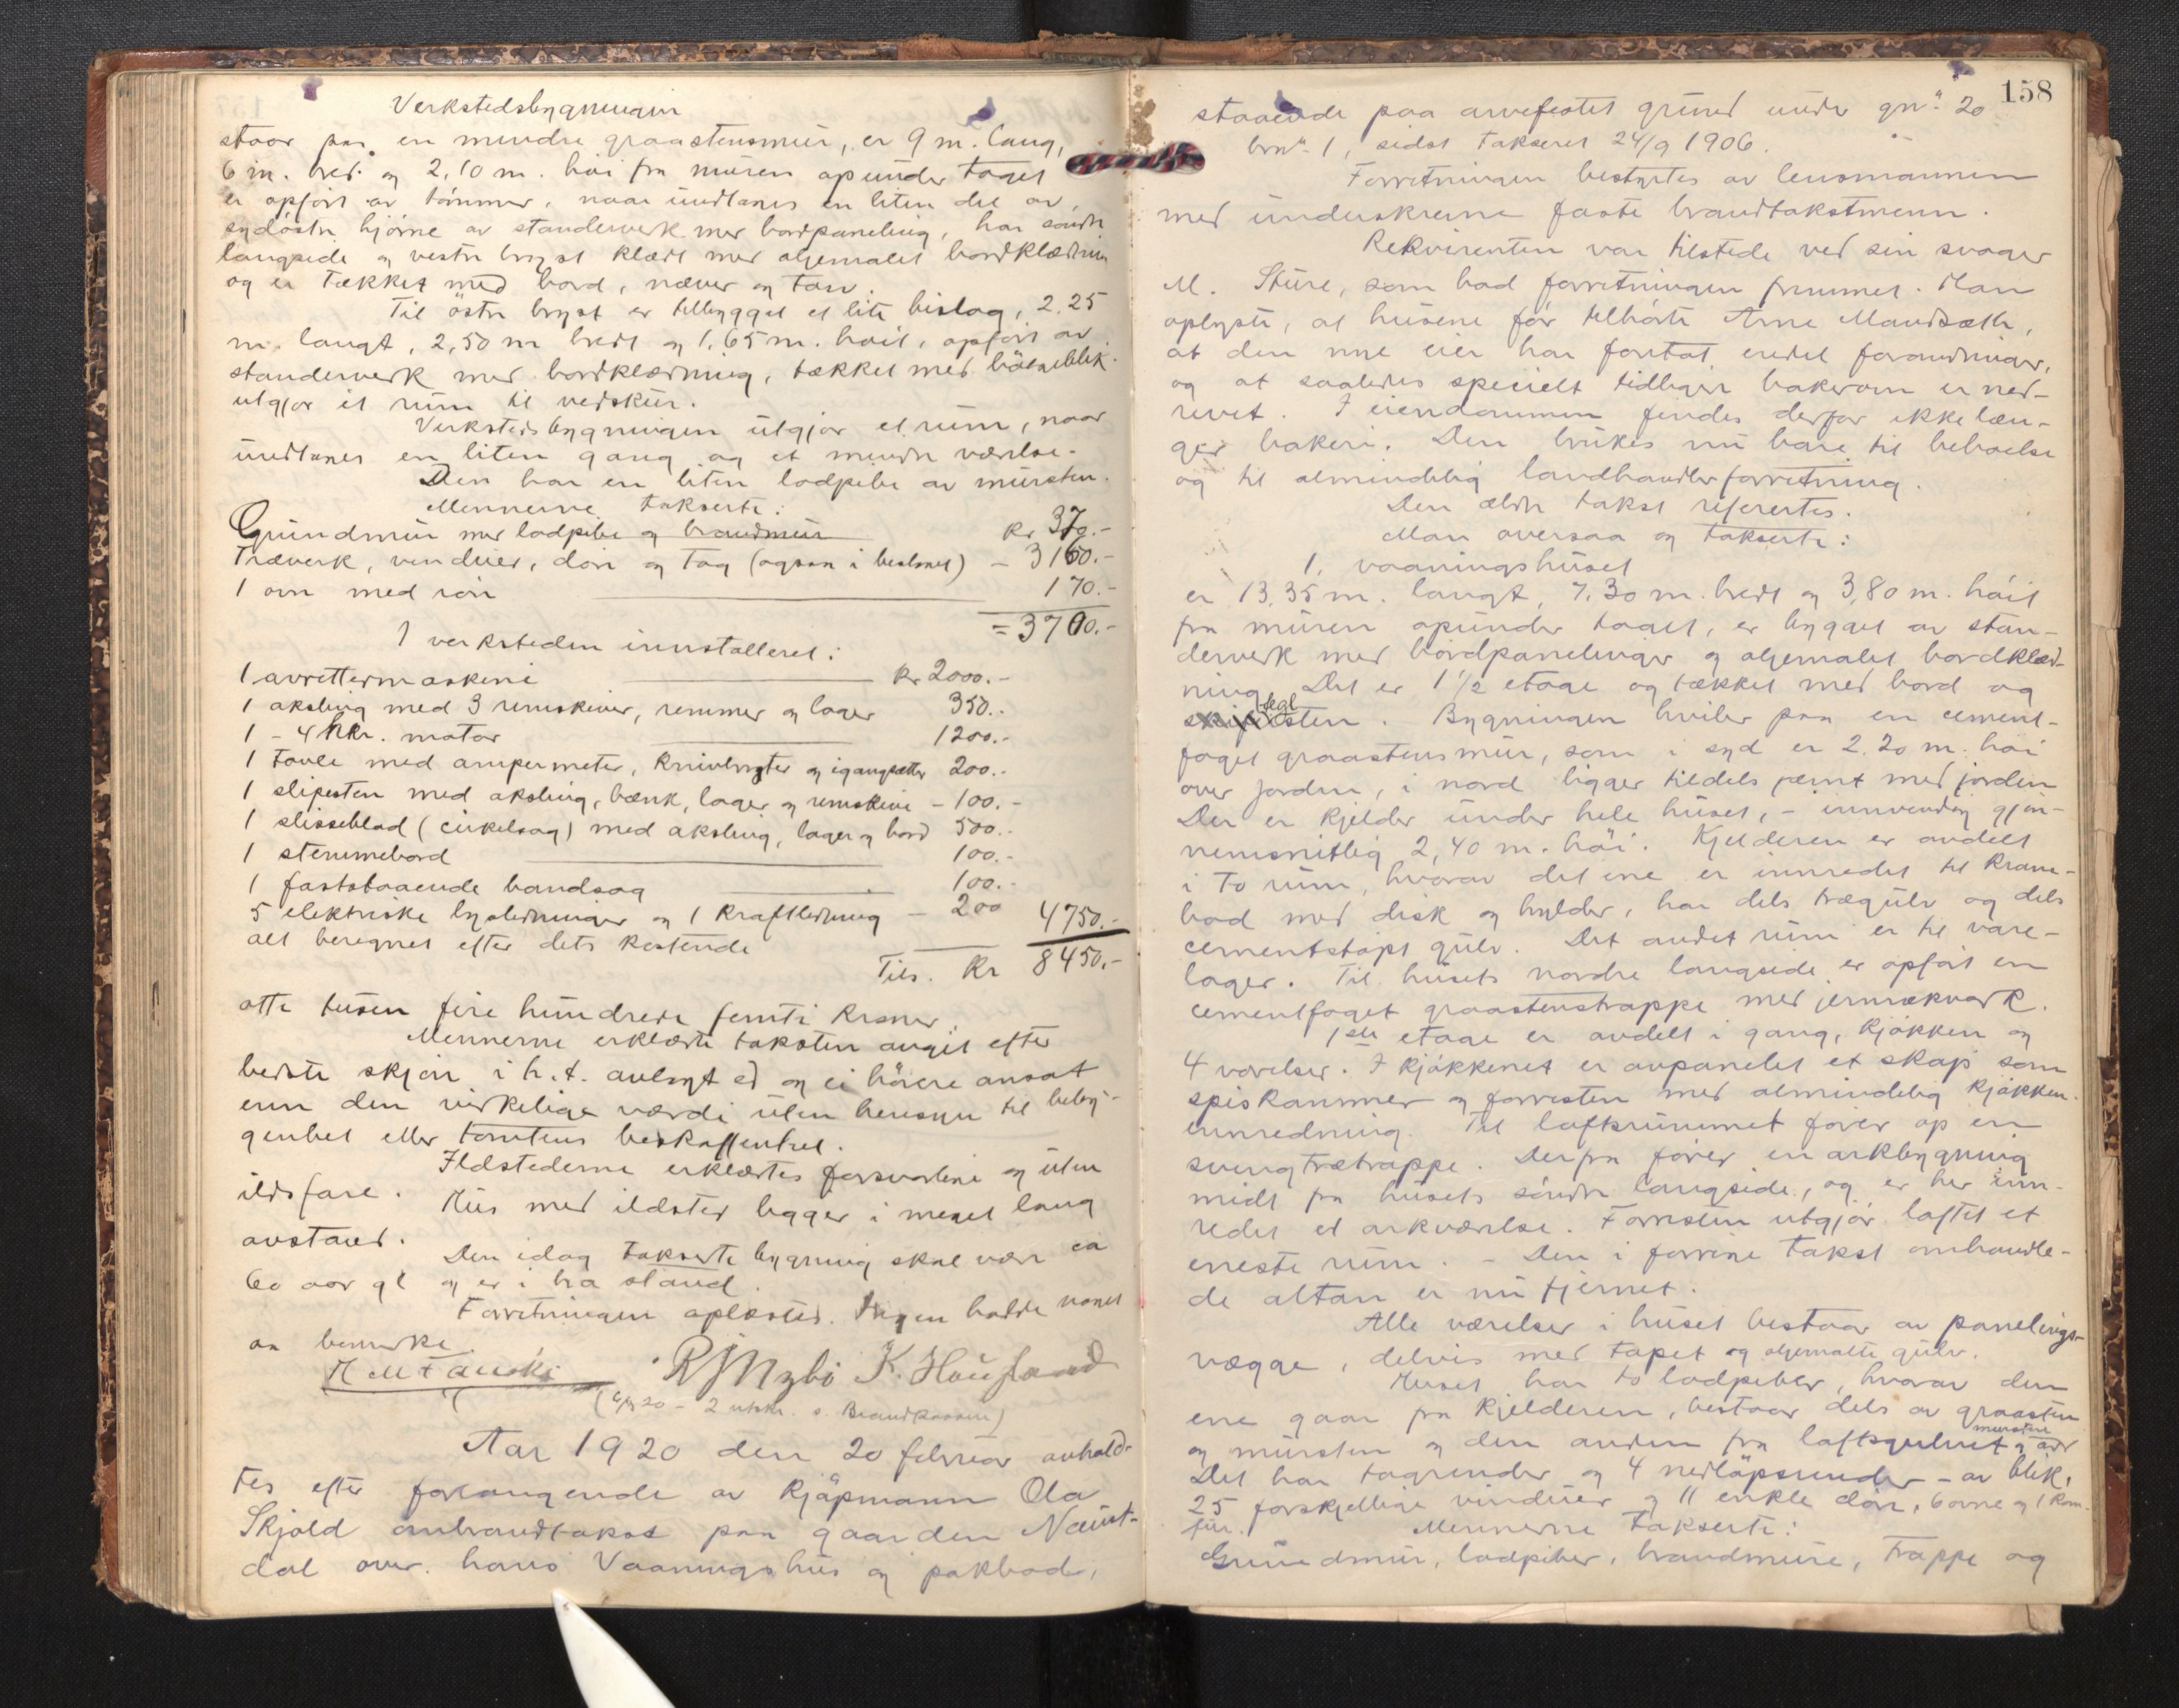 Verkstedsbygningen
staar paa en mindre graastensmur, er 9 m. lang,
6 m. bred og 2,10 m. høi fra muren opunder taget
er opført av tømmer, naar undtanes en liten del av
sydøstre hjørne av standerverk med bordpaneling, har søndre
langside og vestre bryst klædt med oljemalet bordklædning
og er tækket med bord, næver og torv.
Til østre bryst er tilbygget et lite bislag, 2.25
m. langt, 2,50 m bredt og 1,65 m. høit, opført av
standerverk med bordklædning, tækket med bølgeblik.
utgjør et rum til vedskur.
Verkstedsbygningen utgjør et rum, naar
undtanes en liten gang og et mindre værelse.
Den har en liten lodpibe av mursten.
Mennerne takserte:
Grundmur med lodpibe og brandmur kr 370.-
Træverk, vinduer, døre og tag (ogsaa i beslaget) - 3160.-
1 ovn med rør 170.-
= 3700.-
I verksteden innstalleret:
1 avrettermaskine kr 2000.-
1 aksling med 3 remskiver, remmer og lager 350.-
1 - 4 hkr. motor 1200.-
1 tavle med ampermeter, knivbryter og igangsætter 200.-
1 slipesten med aksling, bænk, lager og remskive - 100.-
1 slisseblad (cirkelsag) med aksling, lager og bord 500.-
1 stemmebord 100.-
1 faststaaende bandsag 100.-
5 elektriske lysledninger og 1 kraftledning - 200 4750.-
alt beregnet efter dets kostende
Tils. Kr 8450.-
otte tusen fire hundrede femti kroner.
Mennerne erklærte taksten avgit efter
bedste skjøn i h.t. avlagt ed og ei høiere ansat
enn den virkelige værdi uten hensyn til beligÂ­-
genhet eller tomtens beskaffenhet.
Ildstederne erklærtes forsvarlige og uten
ildsfare. Hus med ildsted ligger i meget lang
avstand.
Den idag takserte bygning skal være ca
60 aar gl og er i bra stand.
Forretningen oplæstes. Ingen hadde noget
at bemerke.
K. Housland
(6/3 20 - 2 utskr. s. Brandkassen)
Aar 1920 den 20 februar avhold-
tes efter forlangende av kjøpmann Ola
Skjold ombrandtakst paa gaarden Naust-
dal over hans Vaaningshus og pakbod,
158
staaende paa arvefestet grund under gnr. 20
brnr. 1, sidst takseret 24/9 1906.
Forretningen bestyrtes av lensmannen
med underskrevne faste brandtakstmenn.
Rekvirenten var tilstede ved sin svoger
M. Sture, som bad forretningen fremmet. Han
oplyste, at husene før tilhørte Arne Maudsæth,
at den nye eier har foretat endel forandringer,
og at saaledes specielt tidligere bakerovn er ned-
revet. I eiendommen findes derfor ikke læn-
ger bakeri. Den brukes nu bare til beboelse
og til almindelig landhandlerforretning.
Den ældre takst refertes.
Man oversaa og takserte:
1. vaaningshuset
er 13,35 m. langt, 7,30 m. bredt og 3,80 m. høit
fra muren opunder taget, er bygget av stan-
derverk med bordpanelinger og oljemalet bordklæd-
ning. Det er 1 1/2 etage og tækket med bord og
teglsten. Bygningen hviler paa en cement-
foget graastensmur, som i syd er 2.20 m. høi
over jorden, i nord ligger tildels jævnt med jorden
Der er kjelder under hele huset, - innvendig gjen-
nemsnitlig 2,40 m. høi. Kjelderen er avdelt
i to rum, hvorav det ene er innredet til kram-
bod med disk og hylder, har dels trægulv og dels
cementstøpt gulv. Det andet rum er til vare-
lager. Til husets nordre langside er opført en
cementfoget graastenstrappe med jernrækverk.
1ste etage er avdelt i gang, kjøkken og
4 værelser. I kjøkkenet er avpanelet et skap som
spiskammer og forresten med almindelig kjøkken-
innredning. Til loftsrummet fører op en
svingtrætrappe. Derfra fører en arkbygning
midt fra husets søndre langside, og er her inn-
redet et arkværelse. Forresten utgjør loftet et
eneste rum. - Den i forrige takst omhandle-
de altan er nu fjernet.
Alle værelser i huset bestaar av panelings-
vægge, delvis med tapet og oljemalte gulv.
Huset har to lodpiber, hvorav den
ene gaar fra kjelderen, bestaar dels av graasten
og mursten og den anden fra loftsgulvet av mursten
Det har tagrender og 4 nedløpsrender - av blik,
25 forskjellige vinduer og 11 enkle døre, 6 ovne og 1 kom-
fur.
Mennerne takserte:
Grundmur, lodpiber, brandmure, trappe og